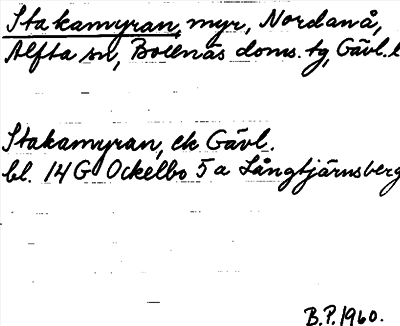 Stakamyran, myr, Nordanå,
Alfta sn, Bollnäs doms. tg, Gävl. l
Stakamyran, ek Gävl.
bl. 14 G Ockelbo 5 a Långtjärnsberg
B.P. 1960.